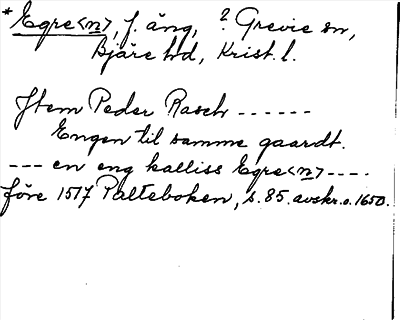 * Egre<n>, f. äng, ? Grevie sn,
Bjäre hd, Krist. l.
Jtem Peder Rasch ------
Engen til samme gaardt.
--- en eng kalliss Egre<n> ----
före 1517 Palteboken, s. 85. avskr. o. 1650.